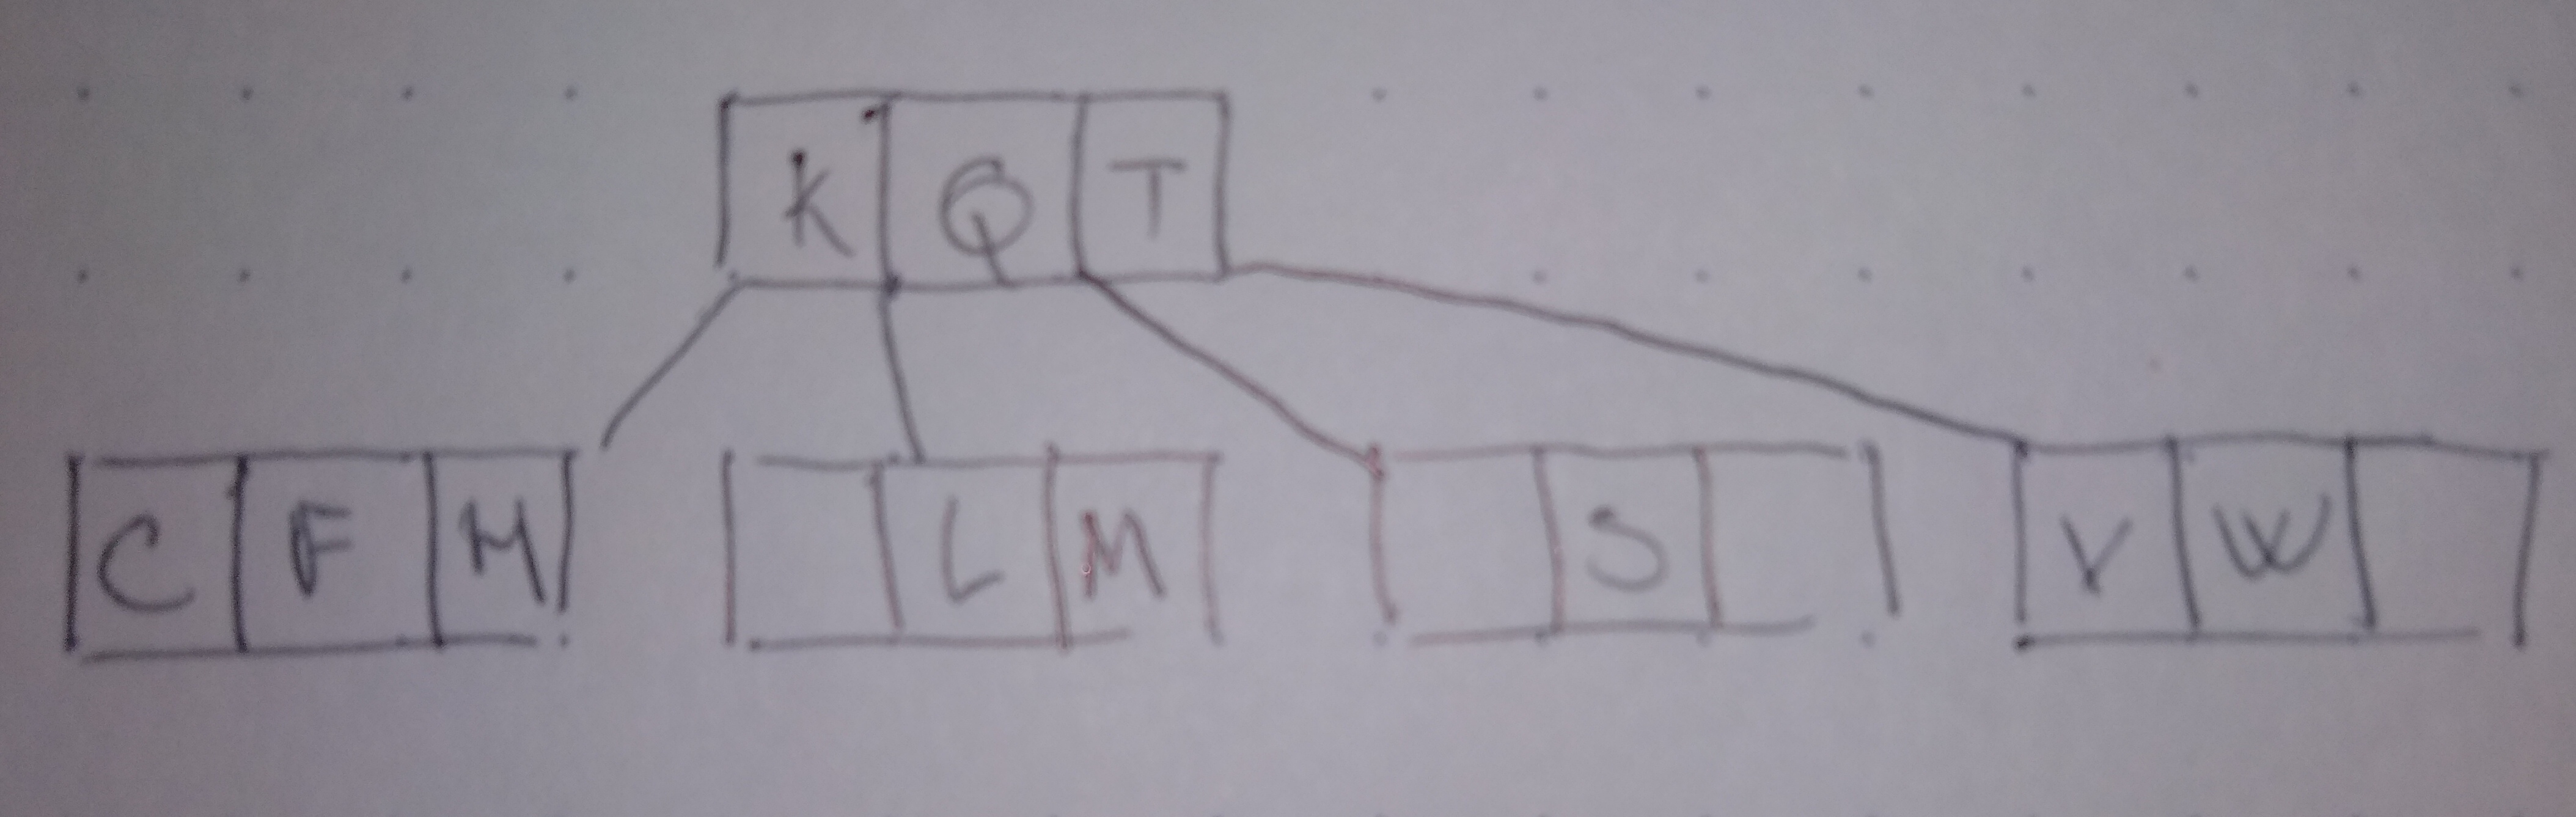 K Q T
C F H L M S V W